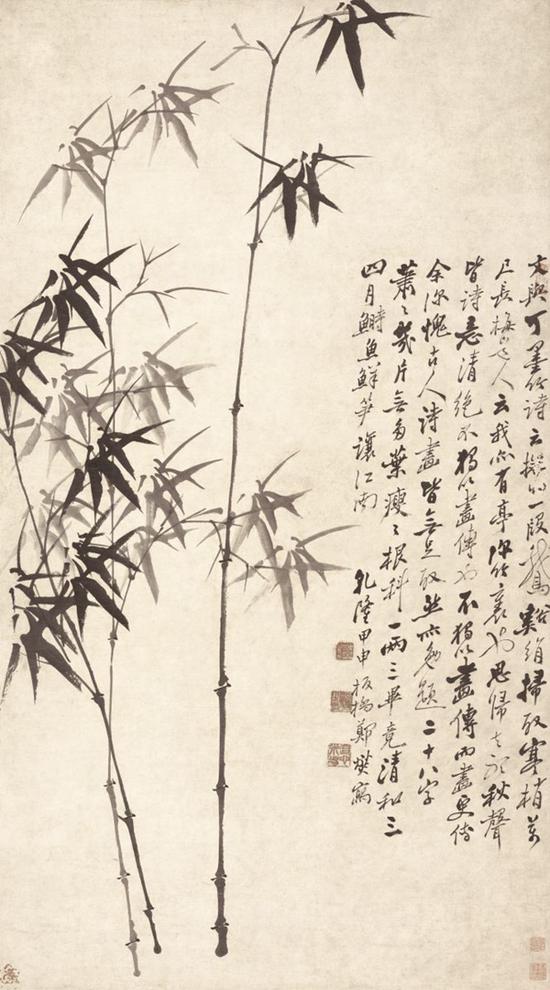 文與可墨竹詩云擬將一段鵝谿絹掃取寒梢萬
尺長梅道人云我亦有亭深竹裏也思歸去聽秋聲
皆詩意清絕不獨以畫傳也不獨以畫傳而畫更傳
余深愧古人詩畫皆無足取然亦勉題二十八字
蕭〻幾片無多葉瘦〻根科一兩三畢竟清和三
四月鰣魚鮮笋讓江南 乾隆甲申板橋鄭燮寫